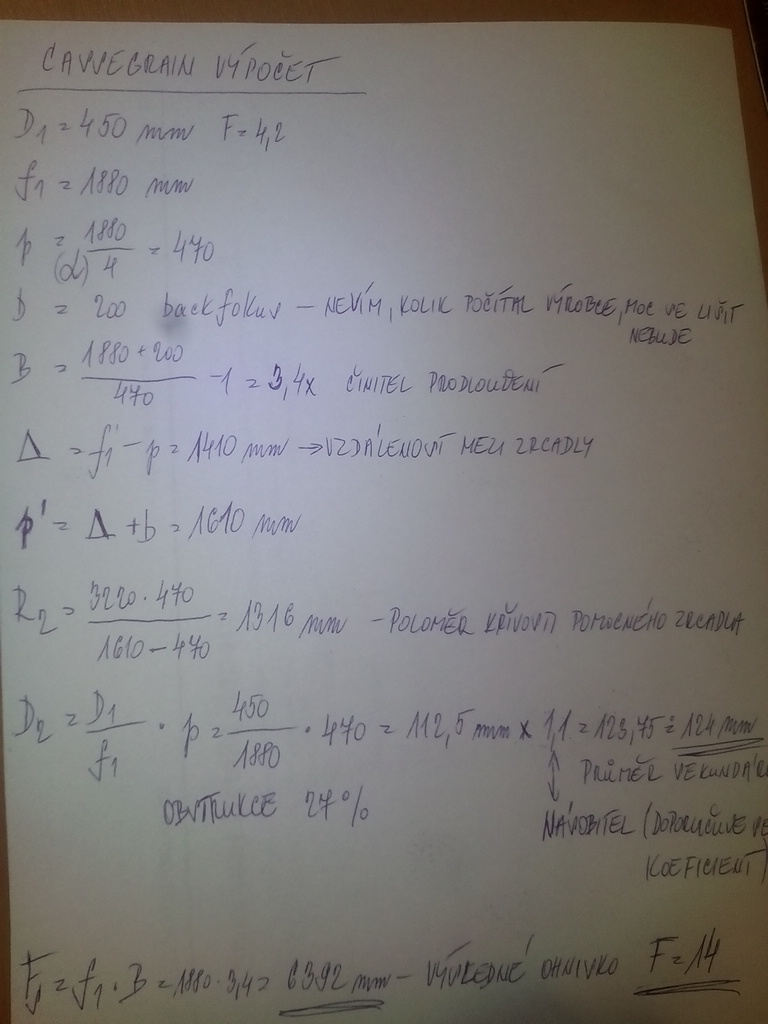 CASSEGRAIN VÝPOČET
D1 = 450 mm F = 4,2
f1 = 1880 mm
p (d) = 1880/4 = 470
b = 200 backfokus – NEVÍM, KOLIK POČÍTAL VÝROBCE, MOC SE LIŠIT
NEBUDE
B = (1880 + 200)/470 - 1 = 3,4x ČINITEL PRODLOUŽENÍ
Δ = f1 - p = 1410 mm → VZDÁLENOST MEZI ZRCADLY
p' = Δ + b = 1610 mm
R2 = (3220 · 470)/(1610 - 470) = 1316 mm - POLOMĚR KŘIVOSTI POMOCNÉHO ZRCADLA
D2 = D1/f1 · p = 450/1880 · 470 = 112,5 mm x 1,1 = 123,75 ≐ 124 mm
PRŮMĚR SEKUNDÁRU
OBSTRUKCE 27%
NÁSOBITEL (DOPORUČUJE SE
KOEFICIENT)
F = f1 · B = 1880 · 3,4 = 6392 mm – VÝSLEDNÉ OHNISKO F = 14